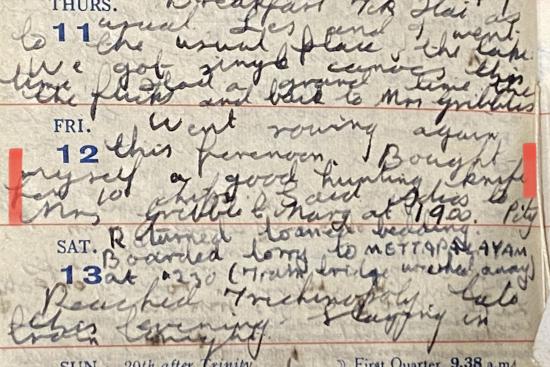 THURS. Breakfast 7ck Hai as
11 usual. Les and I went
to the usual place, the lake.
We got single canoes this
time. Had a grand time. the
the flick and back to Mrs Gribbles
FRI. Went rowing again
12 this forenoon. Bought
myself a good hunting knife
for 10 chips. Said
Mrs Gribble & Mary at 1900. Pity
SAT. Returned loaned bedding.
Boarded lorry to METTAPALAYAM
13 at 1230 (Train bridge washed away)
Reached Trichinopoly late
this evening. Staying in
train tonight.
SUN 20th after Trinity ☽ First Quarter, 9.38 a.m.